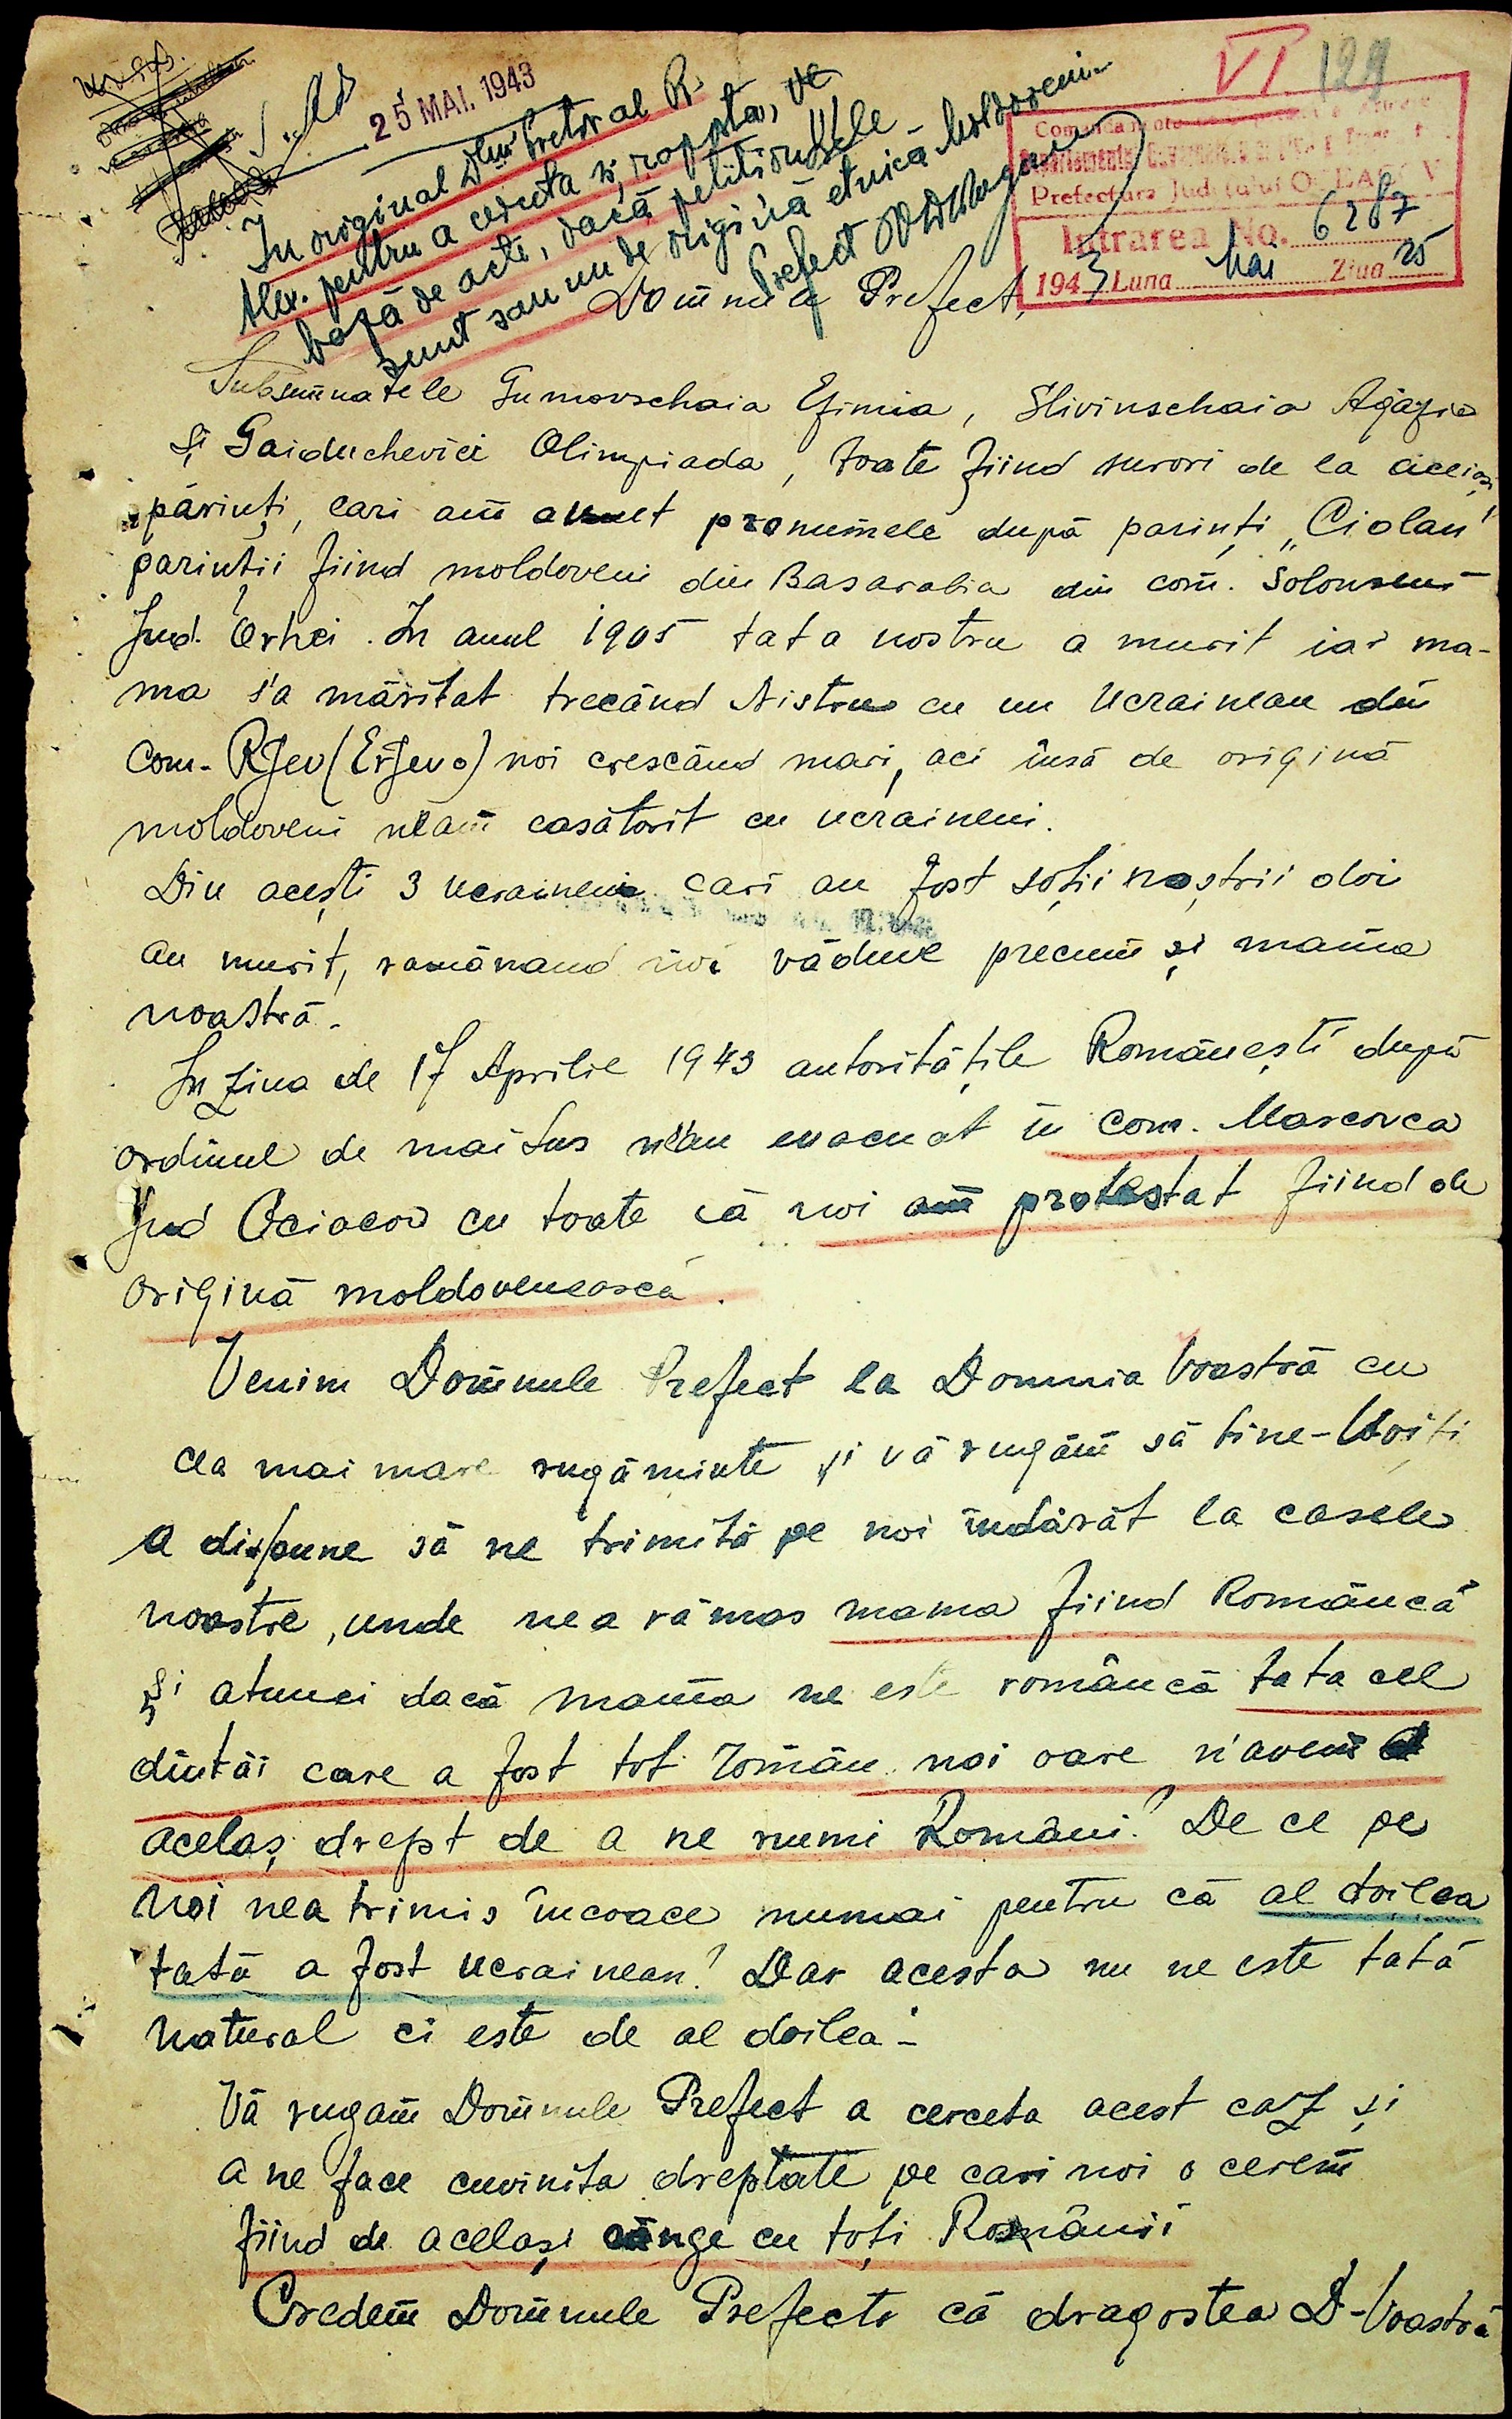 VI 129
25 MAI. 1943
In original Dlui Pretor al R.
Alex. pentru a cerceta și raporta, pe
bază de acte, dacă petiționarele
sunt sau nu de origină etnică Moldoveni-
Prefect
Prefectura Județului OCEACOV
Intrarea No. 6287
1943 Luna Mai Ziua 25
Domnule Prefect,
Subsemnatele Gumovschaia Efimia, Slivinschaia Agafia
și Gaiduchevici Olimpiada, toate fiind surori de la aceiași
părinți, cari am avut pronumele după parinți „Ciolan"
parinții fiind moldoveni din Basarabia din com.
Jud. Orhei. In anul 1905 tata nostru a murit iar ma-
ma s'a măritat trecând Nistru cu un Ucrainean din
Com. Rjev (Erjevo) noi crescând mari, aci însă de origină
moldoveni neam casătorit cu ucraineni.
Din acești 3 ucraineni cari au fost soții noștrii doi
au murit, romănand noi văduve precum și mama
noastră.
In ziua de 17 Aprilie 1943 autoritățile Românești după
ordinul de mai sus neau evacuat în com. Marcovca
Jud Ociacov cu toate că noi am protestat fiind de
origină moldovenească.
Venim Domnule Prefect la Domnia Voastră cu
cea mai mare rugăminte și vă rugăm să bine-Voiți
a dispune să ne trimită pe noi îndărăt la casele
noastre, unde ne a rămas mama fiind Româncă
și atunci dacă mama ne este româncă tata cel
dintăi care a fost tot român noi oare n'avem
acelaș drept de a ne numi Români? De ce pe
noi nea trimis încoace numai pentru că al doilea
tată a fost ucrainean? Dar acesta nu ne este tată
natural ci este de al doilea -
Vă rugam Domnule Prefect a cerceta acest caz și
a ne face cuvinita dreptate pe cari noi o cerem
fiind de același sânge cu toți Românii
Credem Domnule Prefect că dragostea D-Voastră